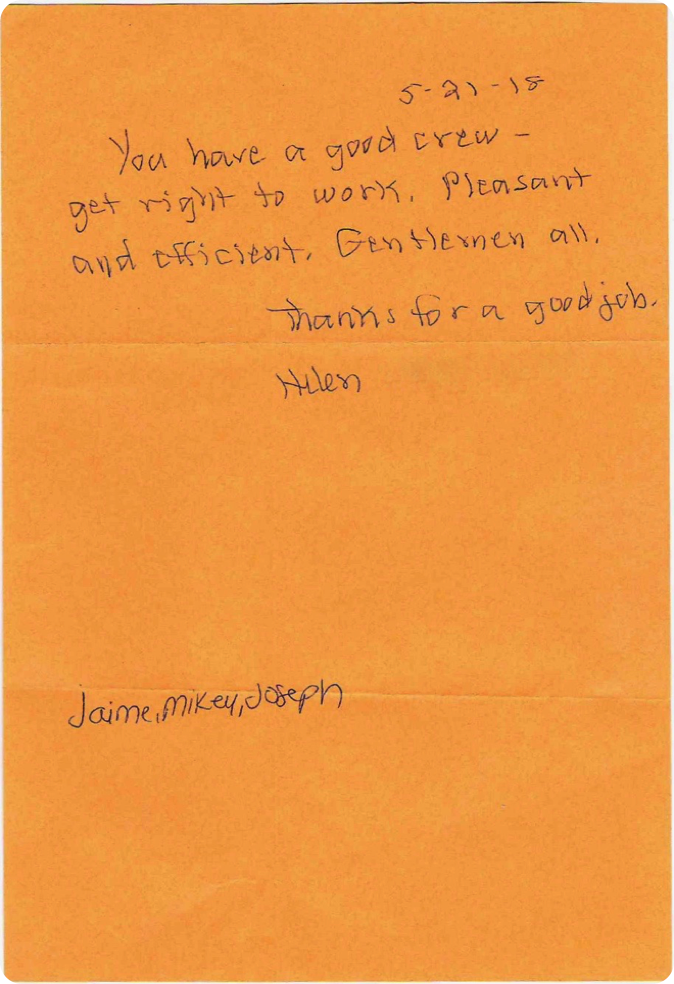 5-21-18
You have a good crew -
get right to work. Pleasant
and efficient. Gentlemen all.
Thanks for a good job.
Helen
Jaime, Mikey, Joseph